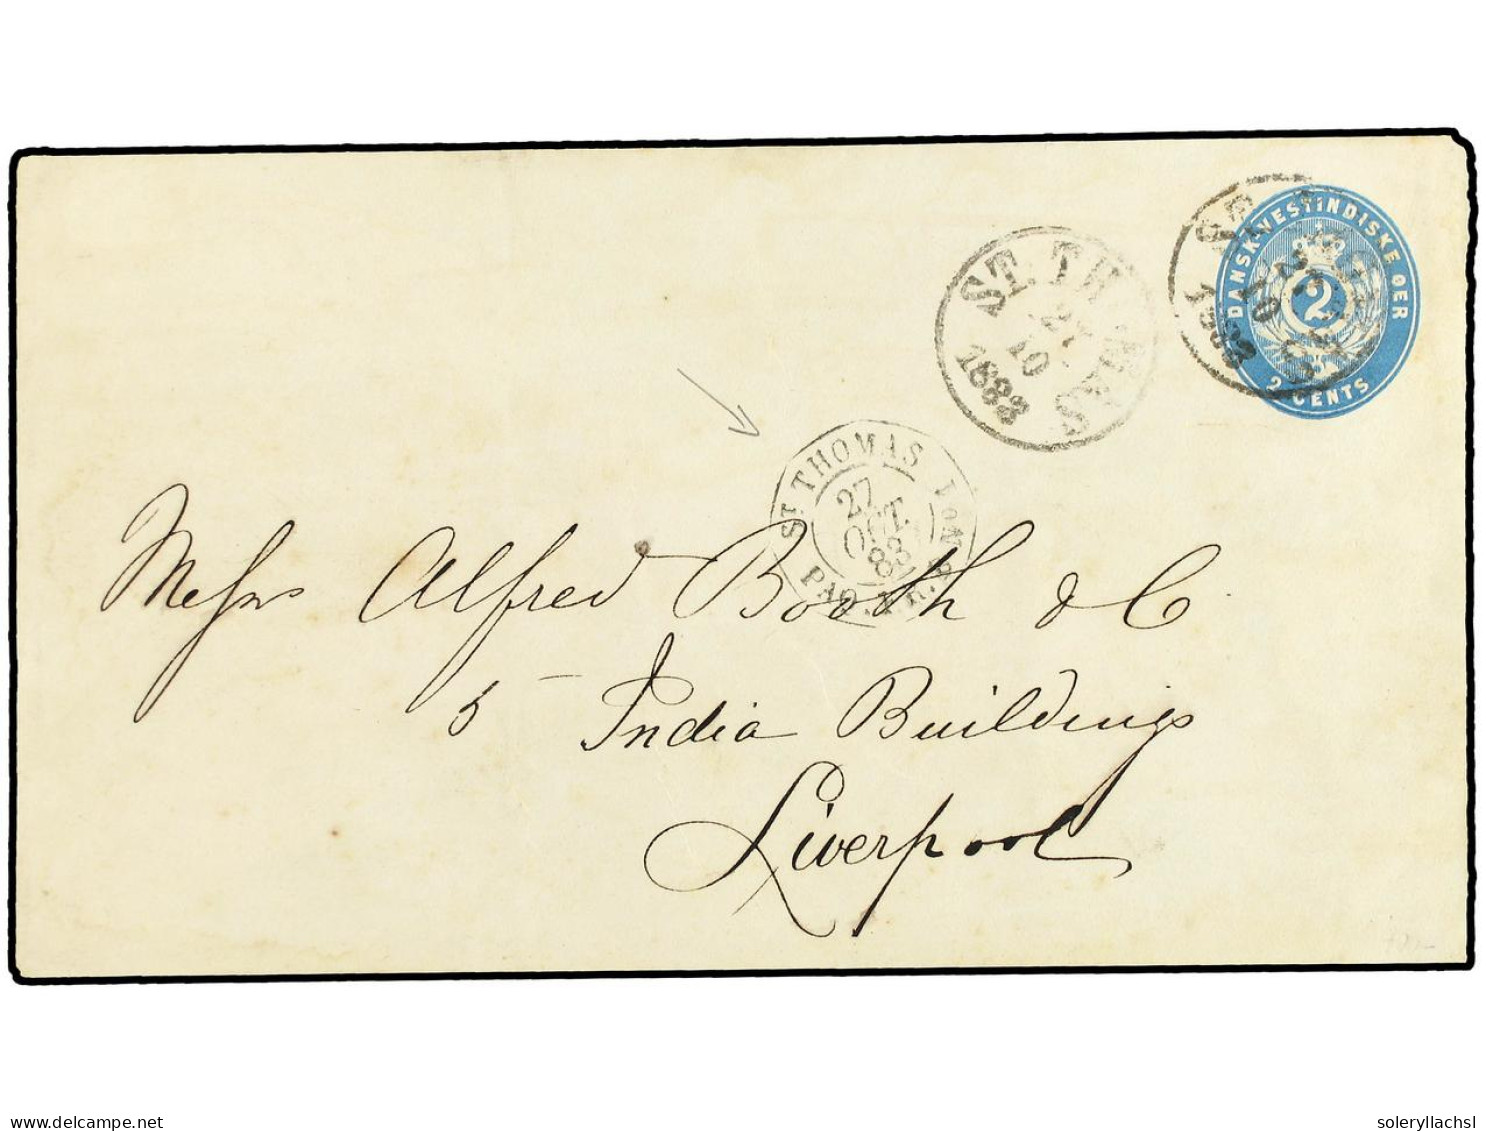 DANSK-VESTINDISKE ØER
2
2 CENTS
ST. THOMAS
27
10
1883
ST THOMAS
27
OCT.
88
PAQ. FR.
Messrs Alfred Booth & C
5 India Buildings
Liverpool
delcampe.net
soleryllachsl